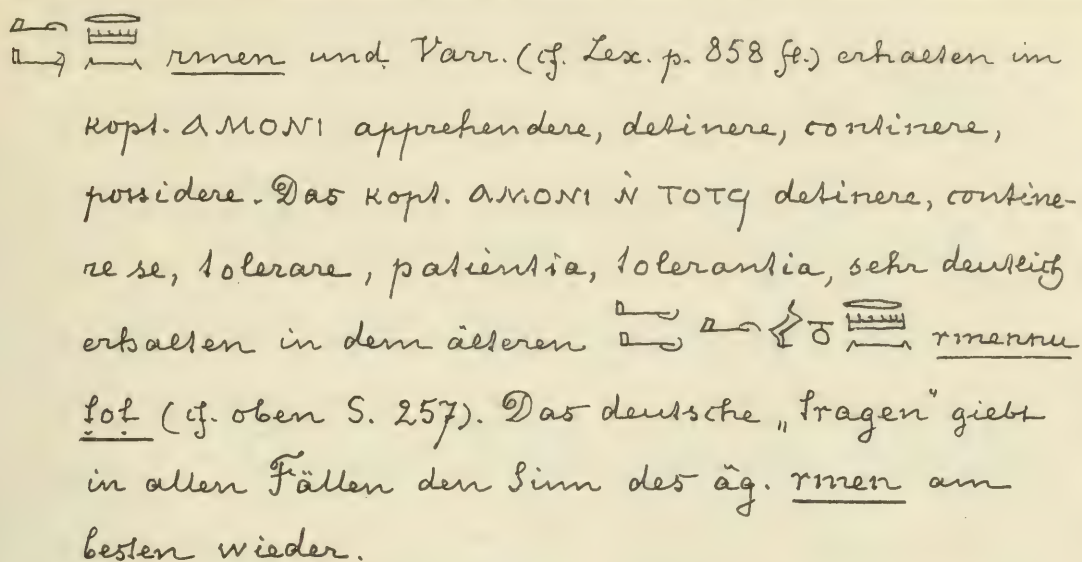 rmen und Varr. (cf. Lex. p. 858 fl.) erhalten im
kopt. ⲀⲘⲞⲚⲒ apprehendere, detinere, continere,
possidere. Das kopt. ⲀⲘⲞⲚⲒ Ⲛ̀ ⲦⲞⲦϤ detinere, contine-
re se, tolerare, patientia, tolerantia, sehr deutlich
erhalten in dem älteren rmennu
ṭoṭ (cf. oben S. 257). Das deutsche „tragen" giebt
in allen Fällen den Sinn des äg. rmen am
besten wieder.